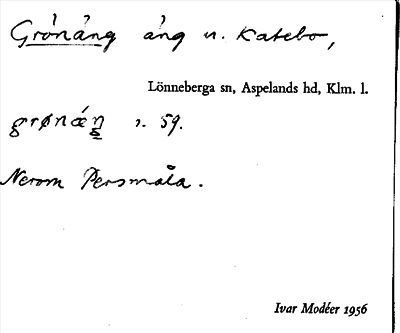 Grönäng äng u. Katebo,
Lönneberga sn, Aspelands hd, Klm. l.
s. 59.
Nerom Persmåla.
Ivar Modéer 1956